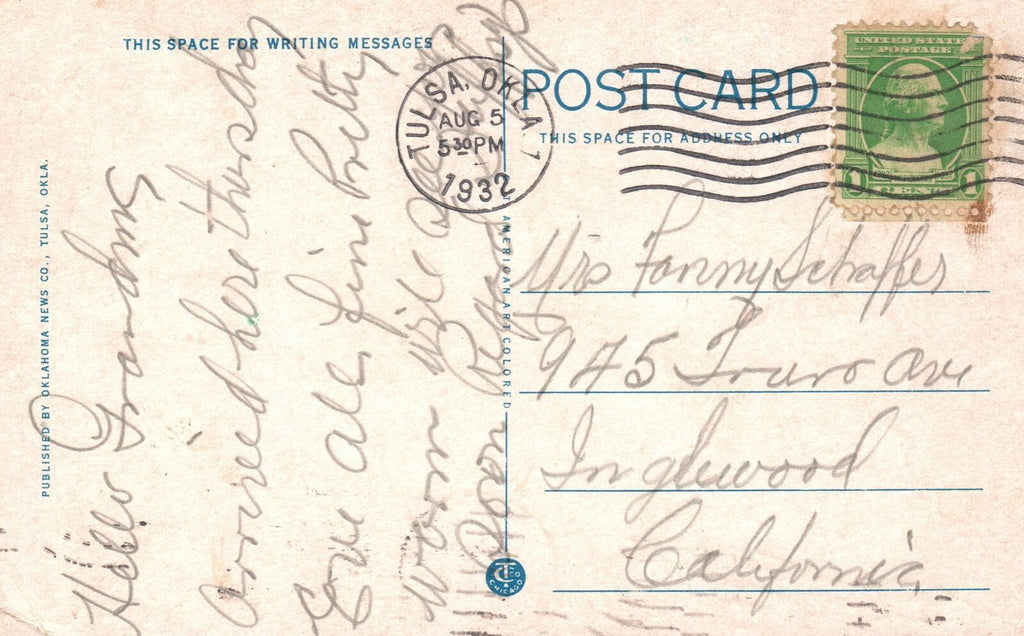 THIS SPACE FOR WRITING MESSAGES
POST CARD
THIS SPACE FOR ADDRESS ONLY
TULSA, OKLA. 1
AUG 5
5 30 PM
1932
UNITED STATES
POSTAGE
1 CENT 1
PUBLISHED BY OKLAHOMA NEWS CO., TULSA, OKLA.
Hello Grandma
arrived here thursday
Eve all fine Pretty
worm will
Soon
T AMERICAN ART COLORED
CT CO
CHICAGO
Mrs Fanny Schaffer
945 Truro Ave
Inglewood
California